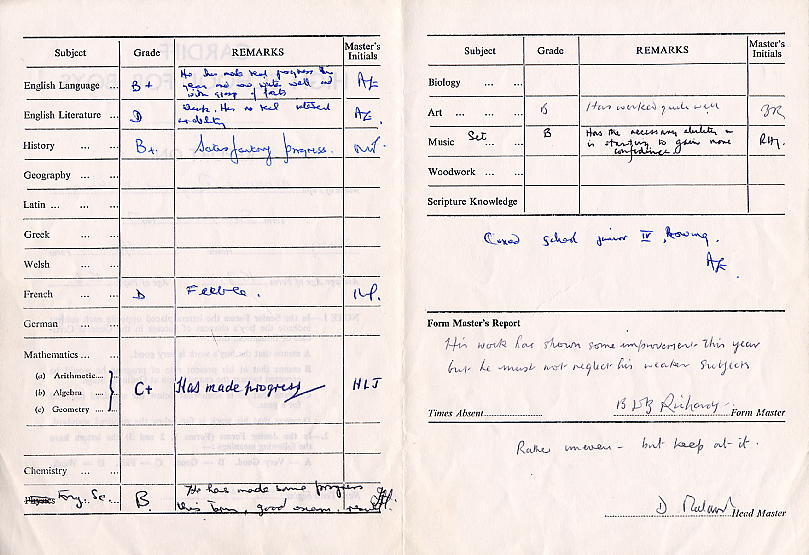 Subject Grade REMARKS Master's Initials
English Language ... B+ He has made real progress this
year and can write well and
with grasp of facts
English Literature ... D Weak. Has no real interest
or ability
History ... ... B+. Satisfactory progress.
Geography ... ...
Latin ... ... ...
Greek ... ...
Welsh ... ...
French ... ... D Feeble.
German ... ...
Mathematics ... ...
(a) Arithmetic....
(b) Algebra .... C+ Has made progress HLJ
(c) Geometry ....
Chemistry ... ...
Physics ... B. He has made some progress
this term, good exam. result
Subject Grade REMARKS Master's Initials
Biology ... ...
Art ... ... B Has worked quite well
Music Set ... ... B Has the necessary ability &
is starting to gain more
confidence.
Woodwork ... ...
Scripture Knowledge
Coxed school junior IV, Rowing.
Form Master's Report
His work has shown some improvement this year
but he must not neglect his weaker subjects
Times Absent Richards Form Master
Rather uneven - but keep at it.
Head Master